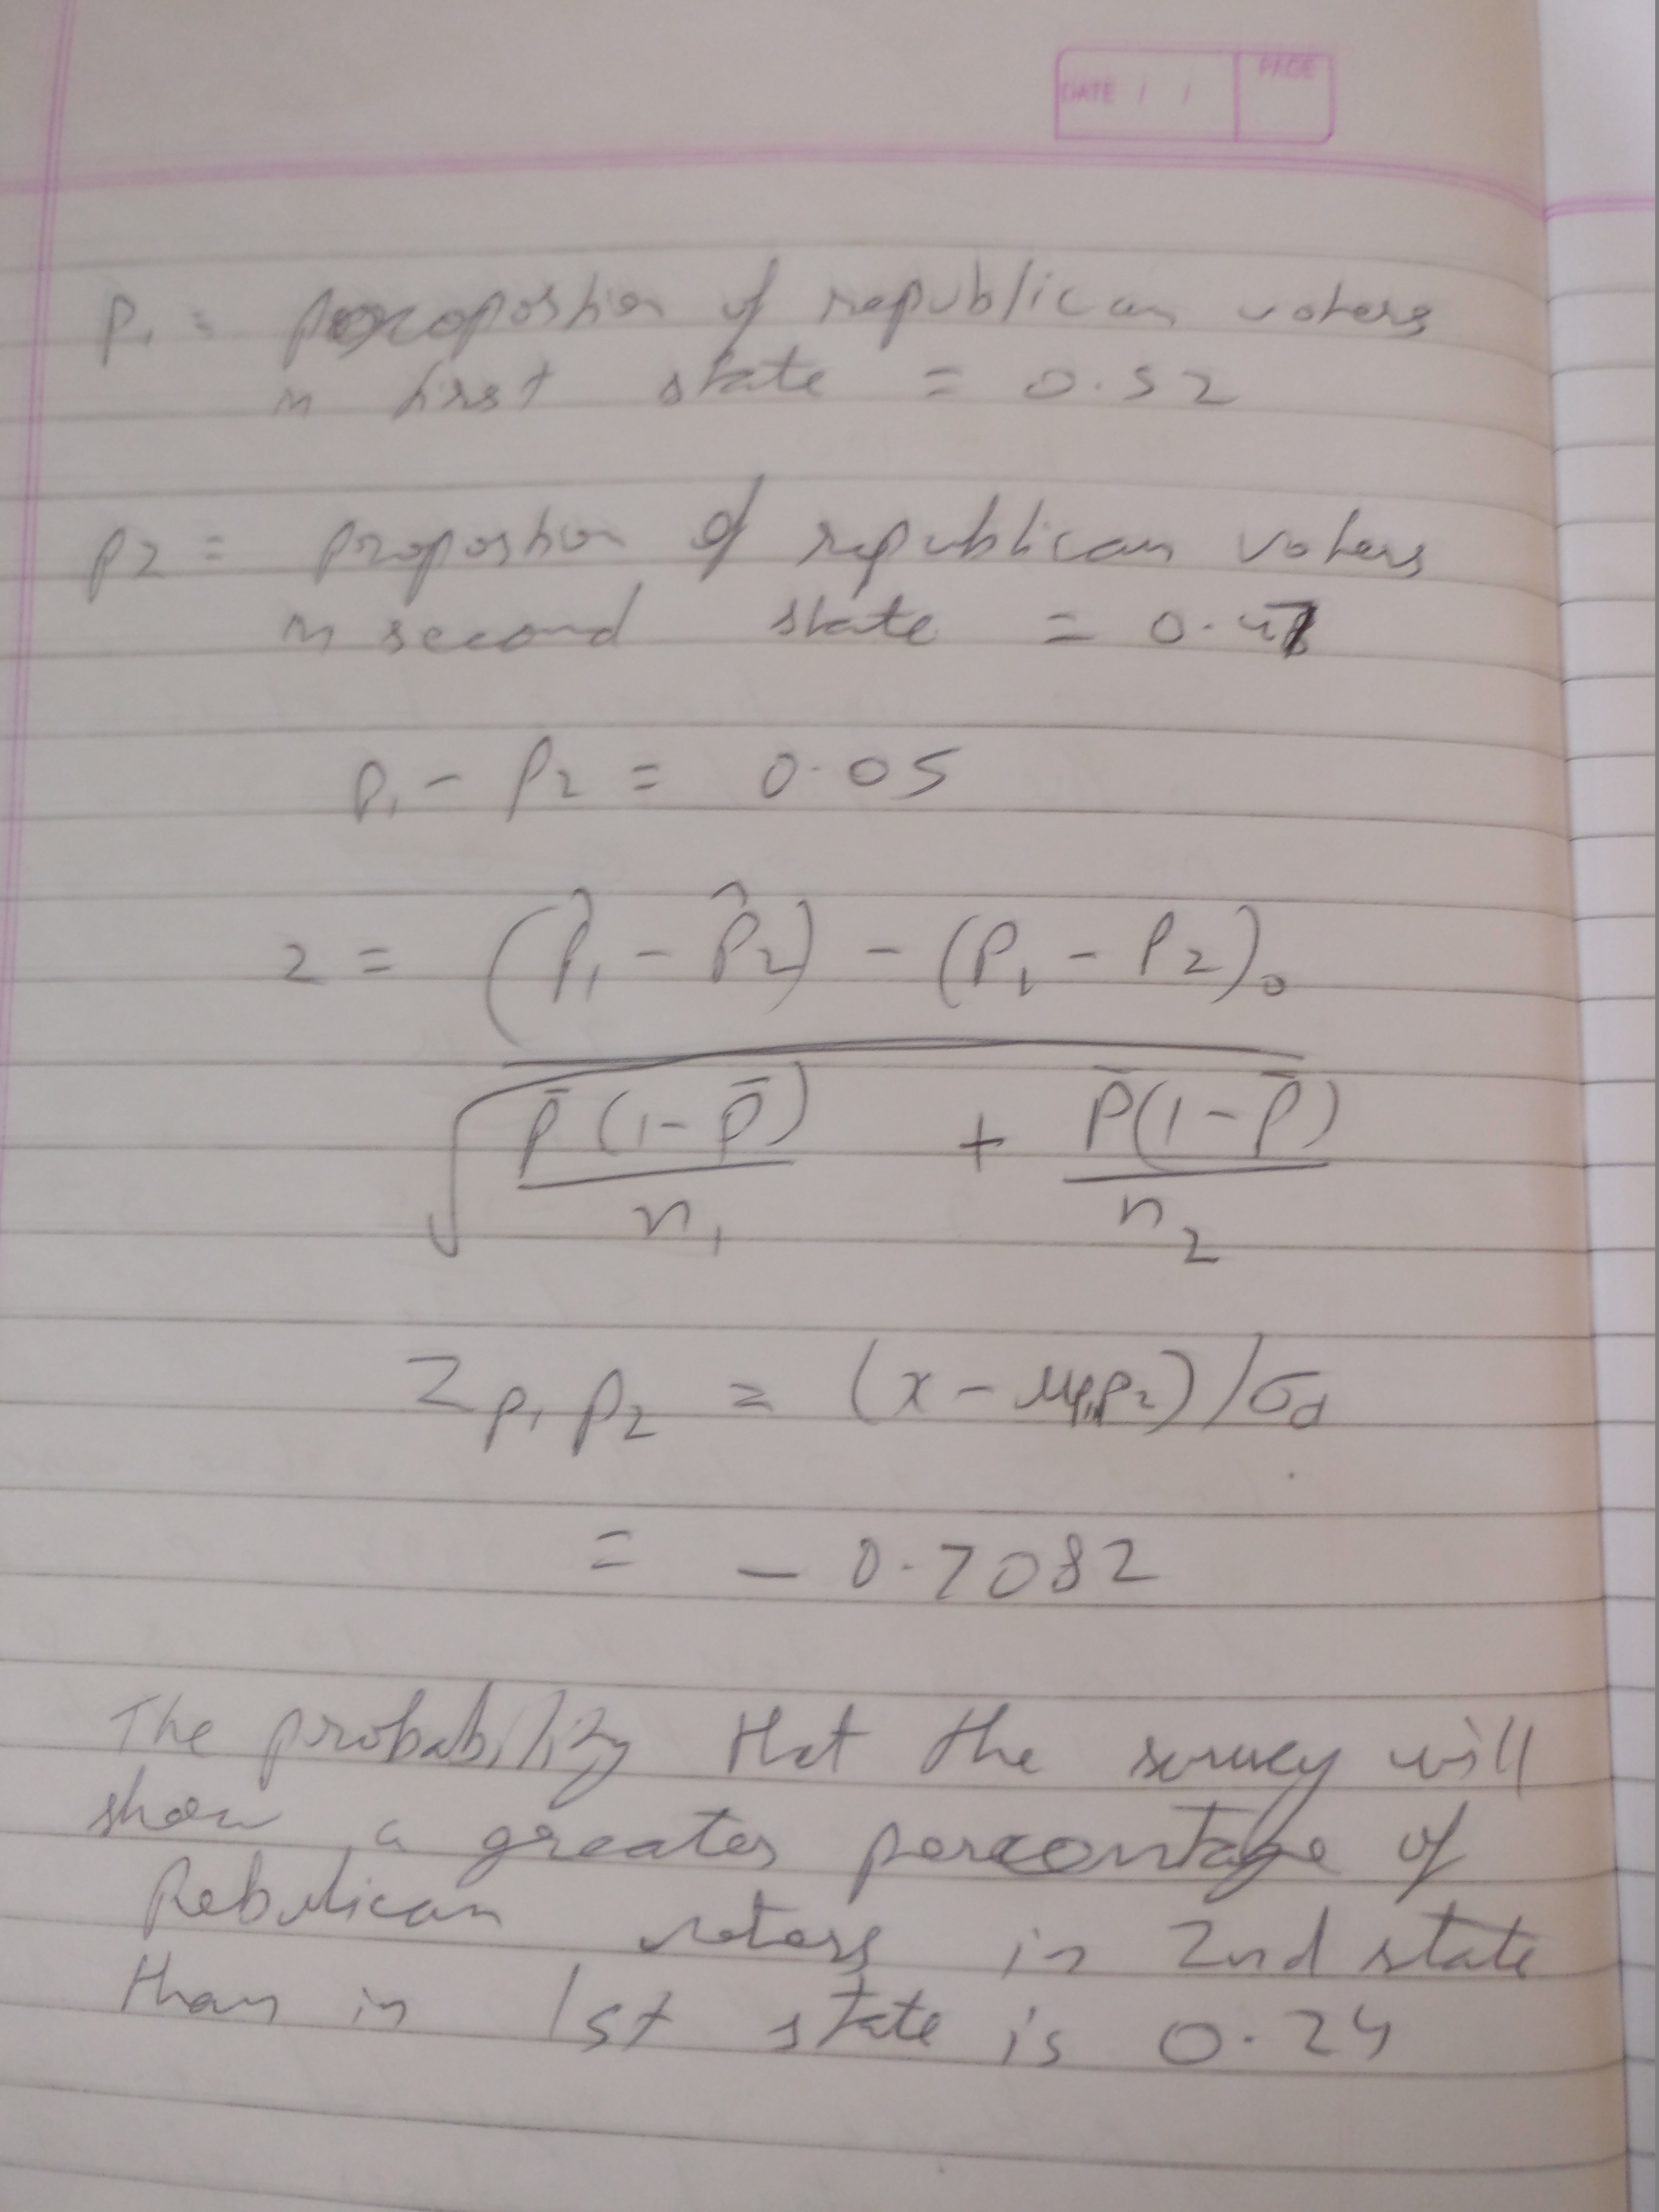 DATE / / PAGE
P₁ = proropostion of republican voters
in first state = 0.52
P2 = propostion of republican voters
in second state = 0.47
P₁ - P₂ = 0.05
z = (p̂₁ - p̂₂) - (P₁ - P₂)₀
√ p̄(1-p̄) / n₁ + p̄(1-p̄) / n₂
Z p₁ p₂ = (x - μp₁p₂)/σd
= - 0.7082
The probability that the survey will
show a greater percentage of
Rebulican voters in 2nd state
than in 1st state is 0.24